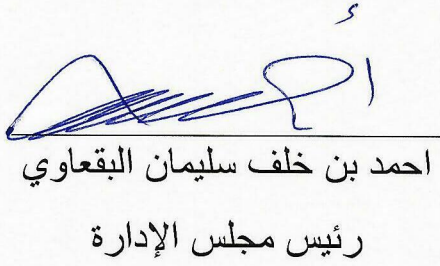 احمد بن خلف سليمان البقعاوي
رئيس مجلس الإدارة